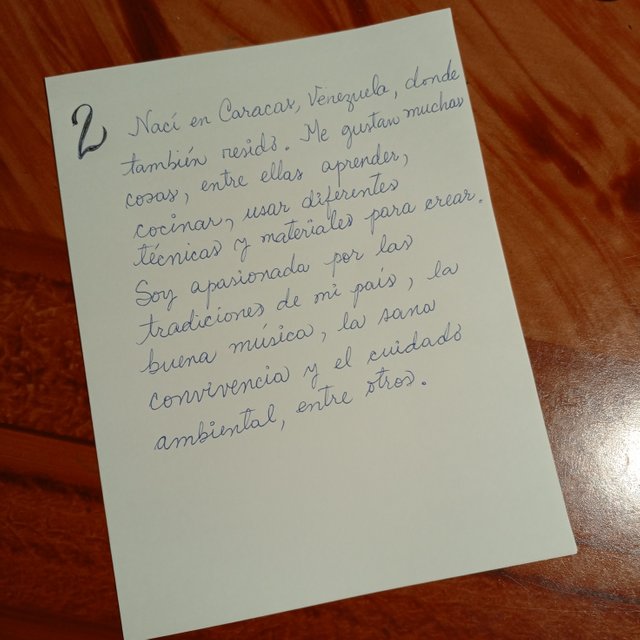 2
Nací en Caracas, Venezuela, donde
también resido. Me gustan muchas
cosas, entre ellas aprender,
cocinar, usar diferentes
técnicas y materiales para crear.
Soy apasionada por las
tradiciones de mi país, la
buena música, la sana
convivencia y el cuidado
ambiental, entre otros.